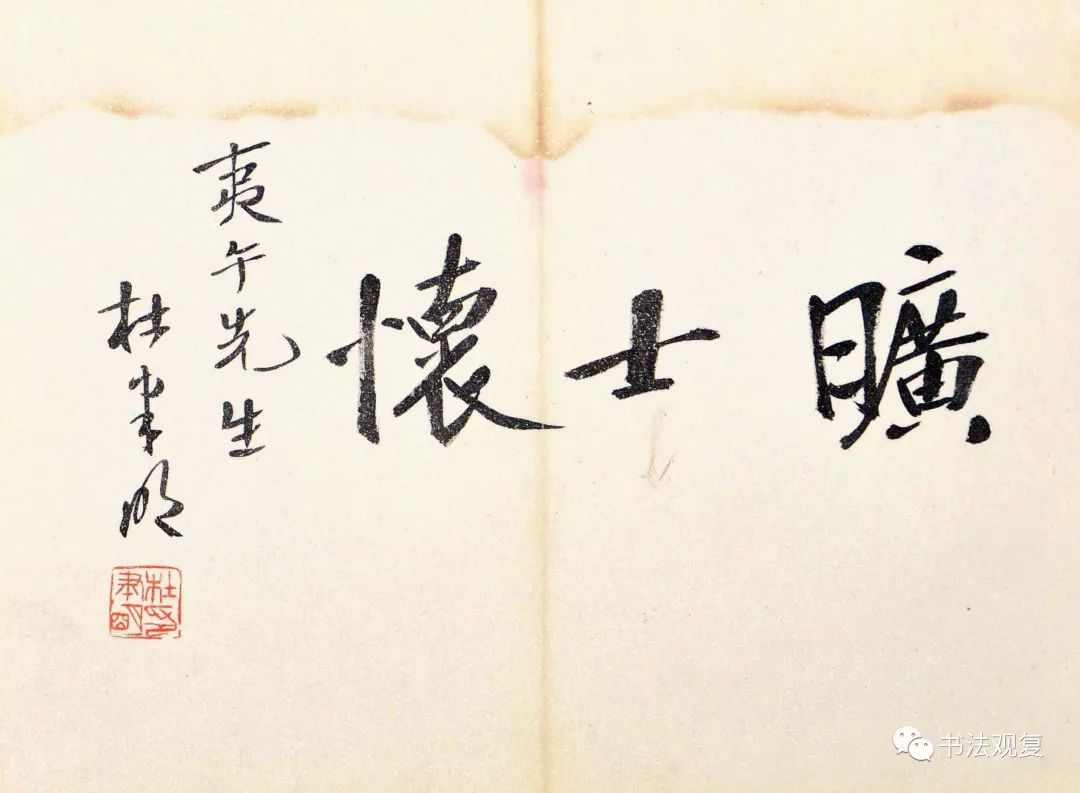 曠士懷
夷午先生
杜聿明
杜印
聿明
书法观复